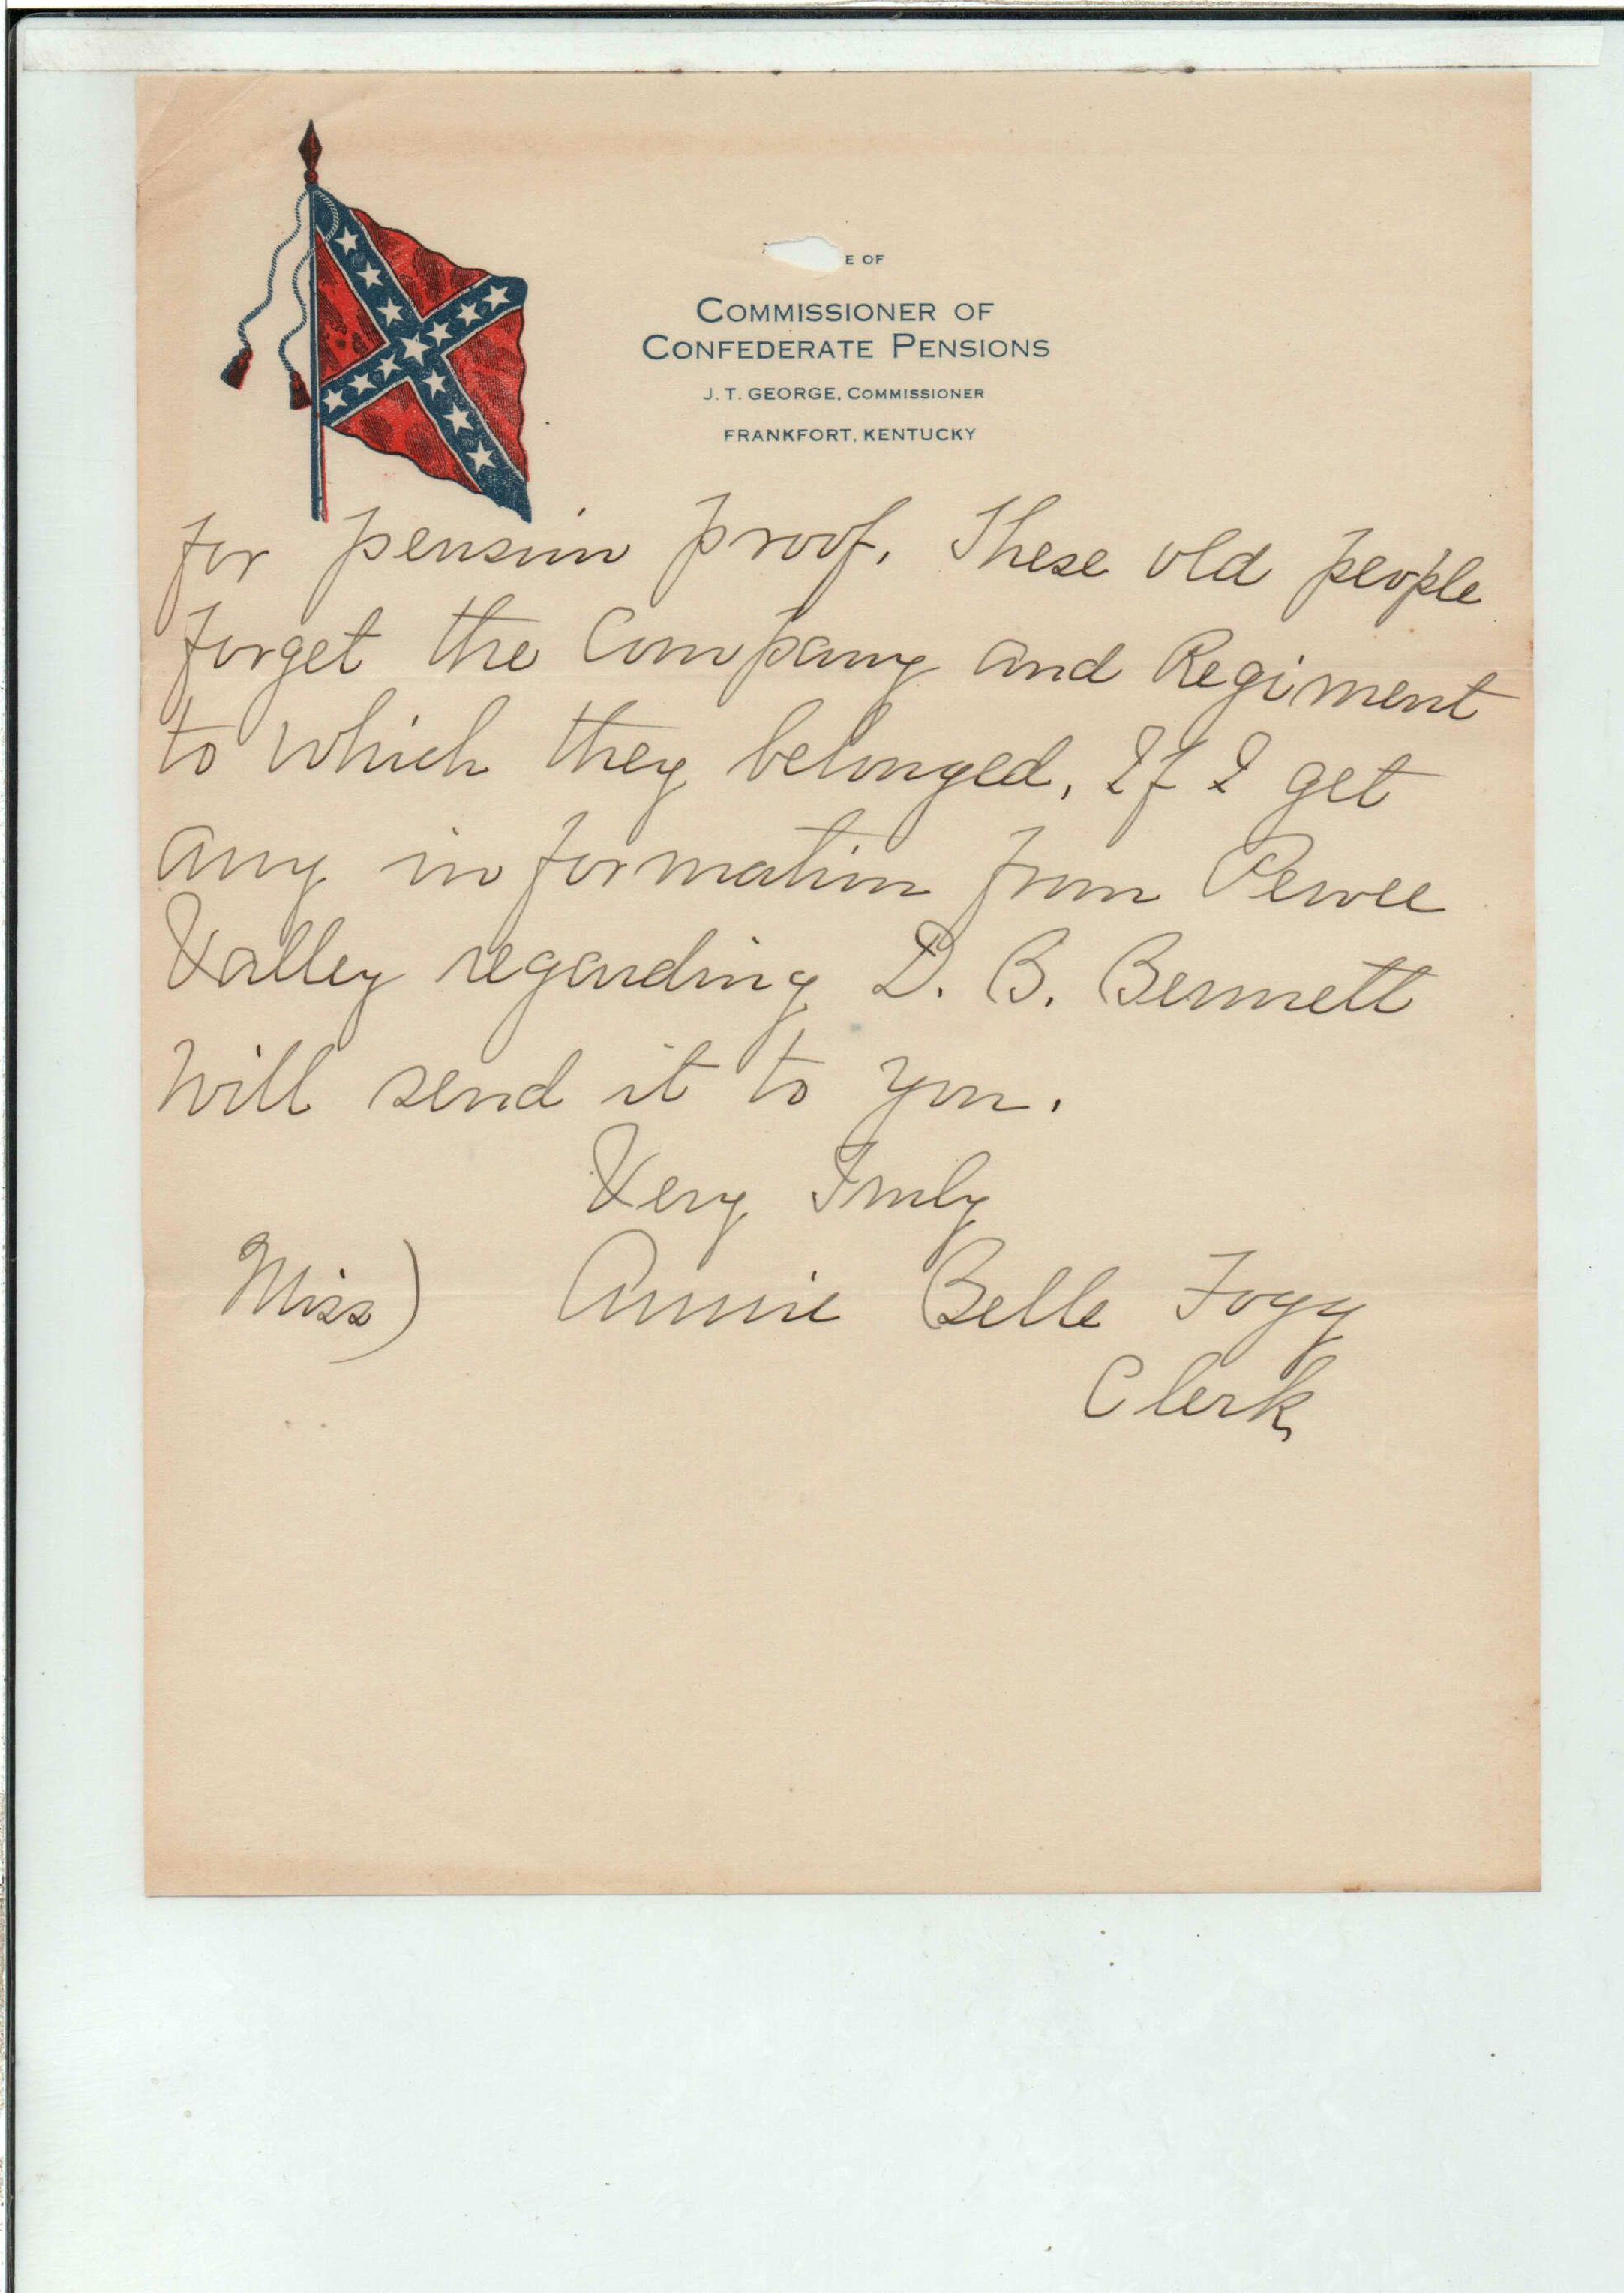 E OF
COMMISSIONER OF
CONFEDERATE PENSIONS
J. T. GEORGE, COMMISSIONER
FRANKFORT, KENTUCKY
for pension proof. These old people
forget the Company and Regiment
to which they belonged. If I get
any information from Pewee
Valley regarding D. B. Bennett
Will send it to you.
Very Truly
Miss) Annie Belle Fogg
Clerk